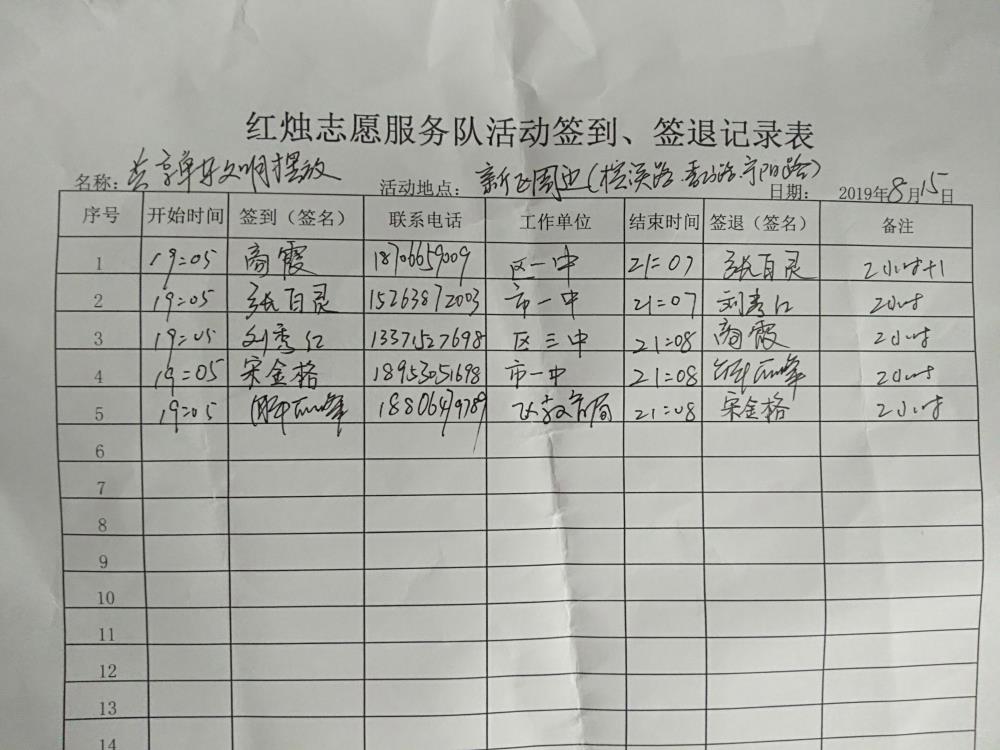 红烛志愿服务队活动签到、签退记录表
名称：共享单车文明摆放 活动地点： 新飞周边（ 路 路 宁阳路） 日期： 2019年8月15日
序号 开始时间 签到（签名） 联系电话 工作单位 结束时间 签退（签名） 备注
1 19:05 商霞 18706659009 区一中 21:07 张百灵 2小时+1
2 19:05 张百灵 15263872003 市一中 21:07 刘秀红 2小时
3 19:05 刘秀红 13371527698 区三中 21:08 商霞 2小时
4 19:05 宋金格 18953051698 市一中 21:08 峰 2小时
5 19:05 峰 18806479789 区教育局 21:08 宋金格 2小时
6
7
8
9
10
11
12
13
14